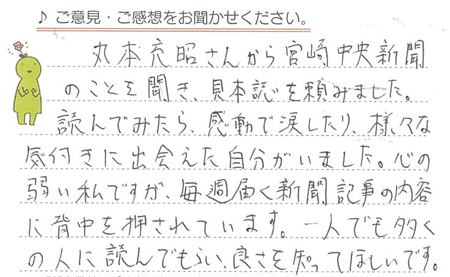 ♪ ご意見・ご感想をお聞かせください。
丸本充昭さんから宮崎中央新聞
のことを聞き、見本誌を頼みました。
読んでみたら、感動で涙したり、様々な
気付きに出会えた自分がいました。心の
弱い私ですが、毎週届く新聞記事の内容
に背中を押されています。一人でも多く
の人に読んでもらい、良さを知ってほしいです。